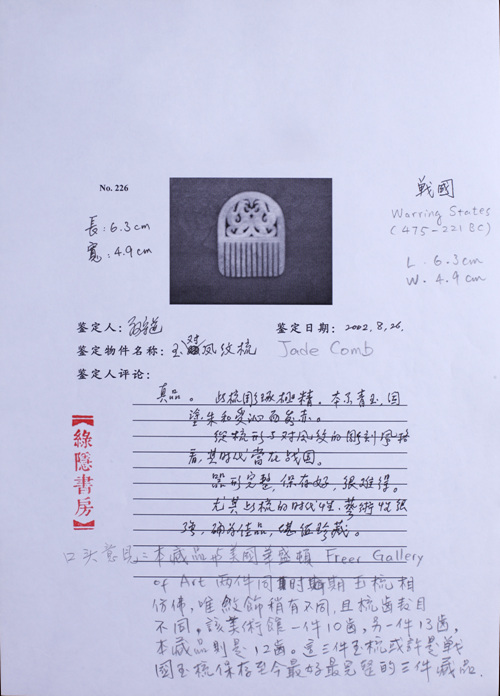 No. 226
長: 6.3 cm
寬: 4.9 cm
戰國
Warring States
(475-221 BC)
L. 6.3 cm
W. 4.9 cm
鉴定人:
鉴定日期: 2002.8.26.
鉴定物件名称: 玉对凤纹梳
Jade Comb
鉴定人评论:
真品。此梳雕琢极精,本系青玉,因
塗朱和受沁而发赤。
从梳形与对凤纹的雕刻风格
看,其时代当在战国。
器形完整,保存好,很难得。
尤其此梳的时代性、藝術性强
确为佳品,堪值珍藏。
【綠隱書房】
口头意見: 本藏品与美國華盛頓 Freer Gallery
of Art 两件同时期玉梳相
仿佛,唯紋飾稍有不同,且梳齒数目
不同,該美術館一件10齒,另一件13齒,
本藏品則是12齒。這三件玉梳或許是戰
國玉梳保存至今最好最完整的三件藏品.